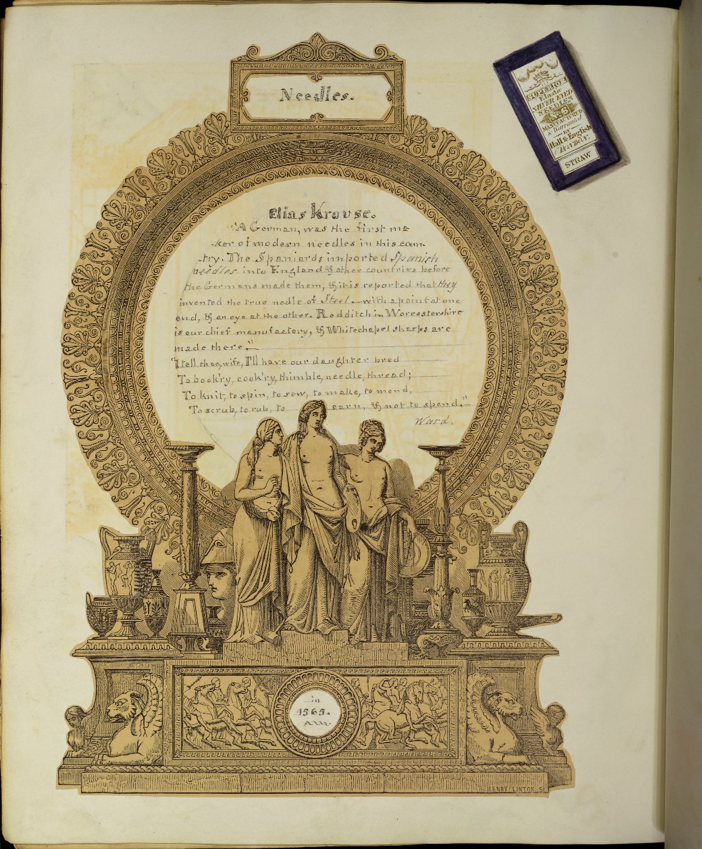 Needles.
Elias Krouse.
"A German, was the first ma-
ker of modern needles in this coun-
try. The Spaniards imported Spanish
needles into England & other countries before
the Germans made them, & it is reported that they
invented the true nedle of Steel—with a point at one
end, & an eye at the other. Redditch in Worcestershire
is our chief manufactory, & Whitechapel sharps are
made there."
"I tell thee, wife, I'll have our daughter bred
To book'ry, cook'ry, thimble, needle, thread;
To knit, to spin, to sew, to make, to mend,
To scrub, to rub, to earn, & not to spend."
Ward.
in
1565.
HENRY LINTON, SC
SILVER EYED
NEEDLES
Hall & English
STRAW